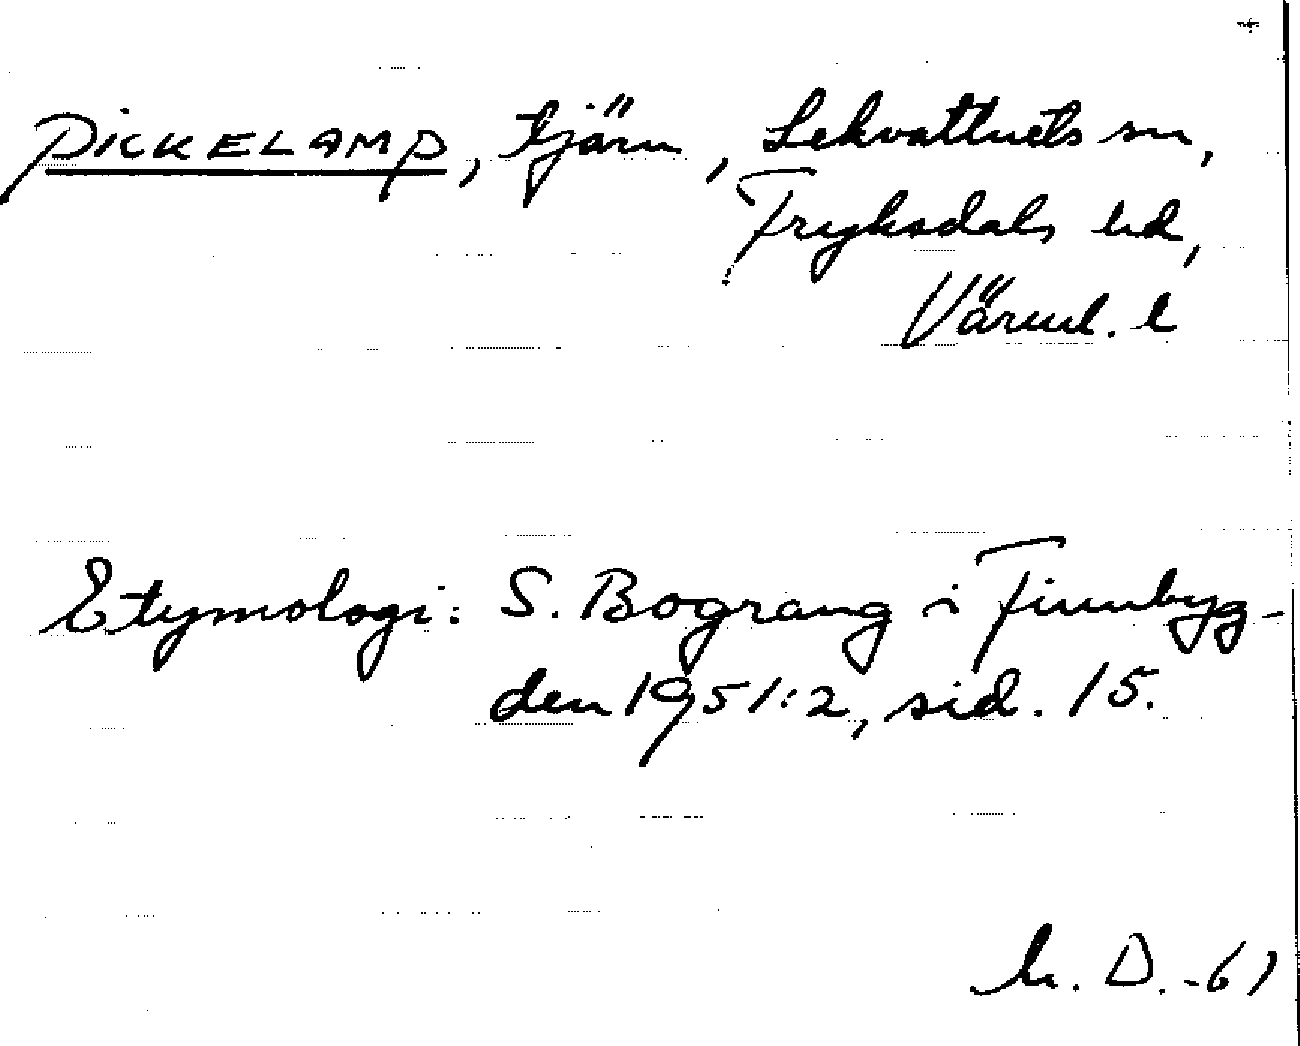 PICKELAMP, tjärn, Lekvattnets sn,
Fryksdals hd,
Värml. l
Etymologi: S. Bograng i Finnbyg-
den 1951:2, sid. 15.
D. -61